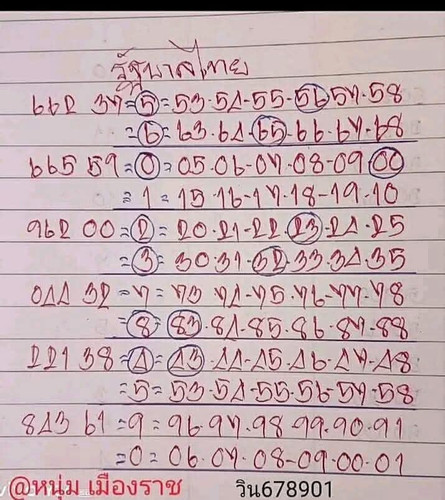 รัฐบาลไทย
662 37=5=53-54-55-56 57-58
=6=63.64.65-66.67-68
665 59=0=05.06-07-08-09.00
=1=15-16-17-18-19-10
962 00=2=20-21-22-23-24-25
=3=30.31-32-33.34-35
044 32=7=73 74-75.76-77-78
=8=83.84-85-86-87-88
221 38=4=43-44-45.46-47-48
=5=53-54-55-56-57-58
843 61=9=96-97-98-99-90-91
=0=06.07-08-09-00-01
@หนุ่ม เมืองราช วิน678901